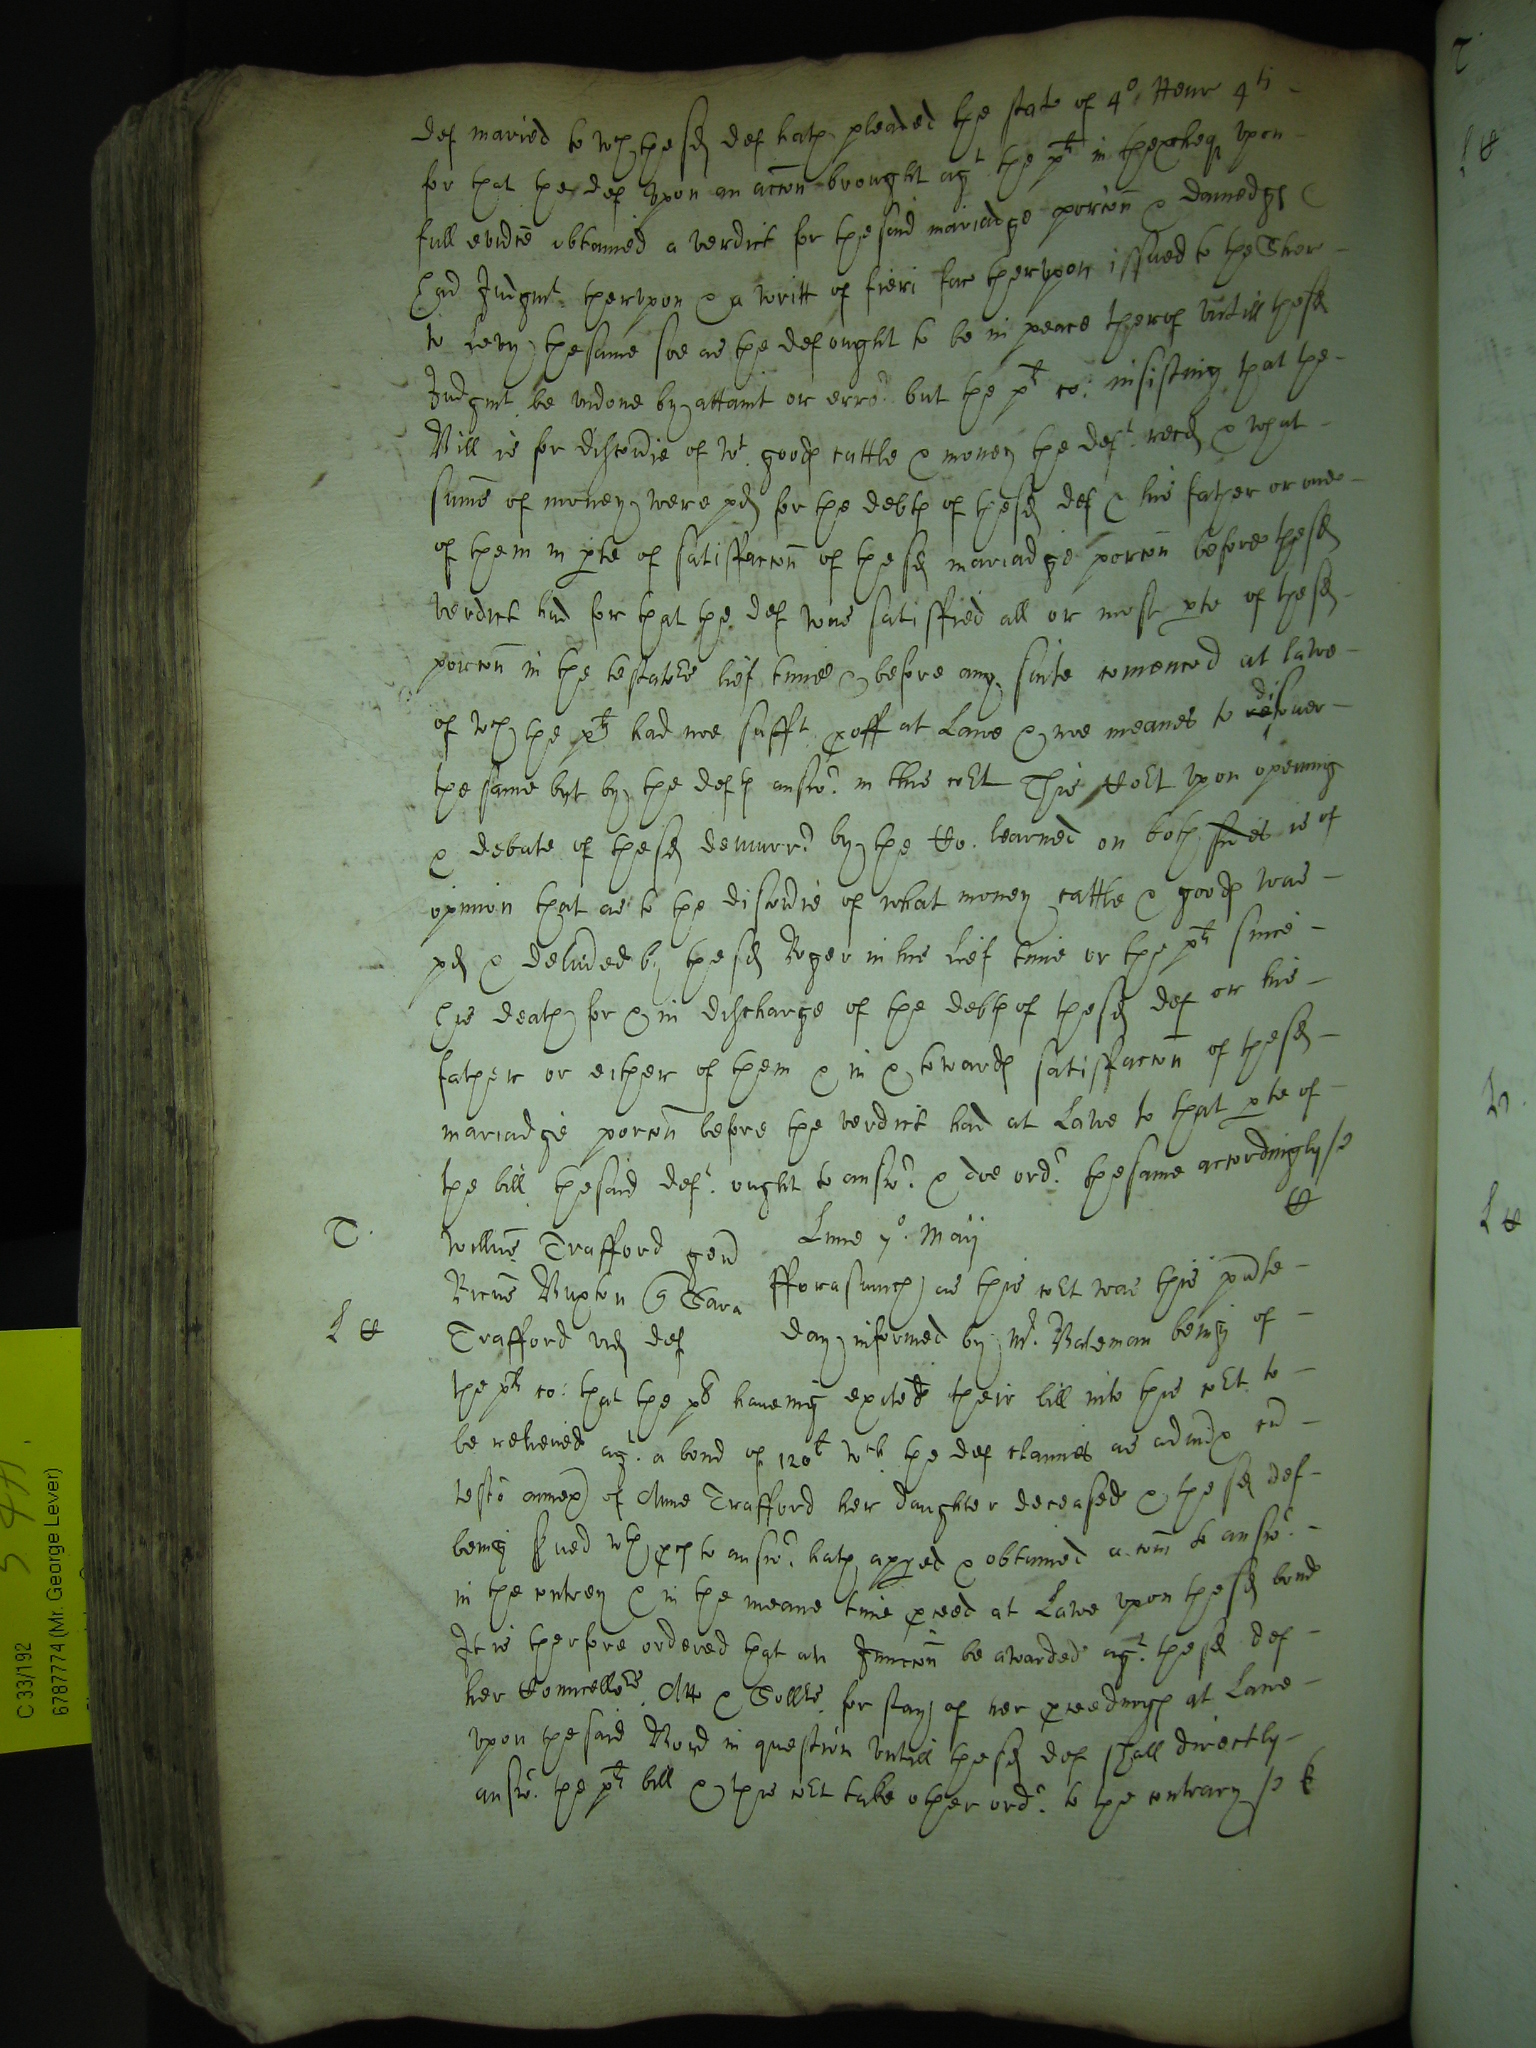 def maried to wch the sd def hath pleaded the state of 4o Henr 4ti
for that the def vpon an accon brought agt the plt in thexcheqr vpon
full evidence obtained a verdict for the said mariadge porcon & damedgs &
had Judgmt thervpon & a writt of fieri fac thervpon issued to the Sher
to Levy the same soe as the def ought to be in peace therof vntill the sd
Judgmt be vndone by attaint or erro.r but the plt co: insisting that the
Bill is for discouie of wt goods cattle & money the deft recd & what
summe of money were pd for the debts of the sd def & his father or one
of them in pte of satisfaccon of the sd mariadge porcon before the sd
verdict had for that the def was satisfied all or most pte of the sd
porcon in the testators lief time & before any suite comenced at lawe
of wch the plt had noe sufft proff at Lawe & noe meanes to discouer
the same byt by the defts answ.r in this cort This Cort vpon opening
& debate of the sd demurr.r by the Co. learned on both sides is of
opinion that as to the discouie of what money cattle & goods was
pd & deliuered by the sd Roger in his lief time or the plt since
his death for & in discharge of the debts of the sd def or his
father or either of them & in & towards satisfaccon of the sd
mariadge porcon before the verdict had at Lawe to that pte of
the bill the said deft ought to answ.r & doe ord.r the same accordingly
T.
Willm Trafford gen
Lune 7o Maij
Ricus Buxton q Sara
fforasmuch as this cort was this pnte
Trafford vid def
day informed by Mr. Bateman being of
the plts co: that the pts haueing exited their bill into this cort to
be releiued agt a bond of 120l wch the def claimes as admx cu
testo annex of Anne Trafford her daughter deceased & the sd def
being serued wth pces to answ.r hath apped & obtained a com to answ.r
in the contrey & in the meane time pceed at Lawe vpon the sd bond
It is therfore ordered that an Juncon be awarded agt the sd def
her Councellors Atto & Sollrs for stay of her pceedings at Lawe
vpon the said Bond in question vntill the sd def shall directly
answ.r the plts bill & this cort take other ord.r to the contrary
C 33/192
6787774 (Mr. George Lever)